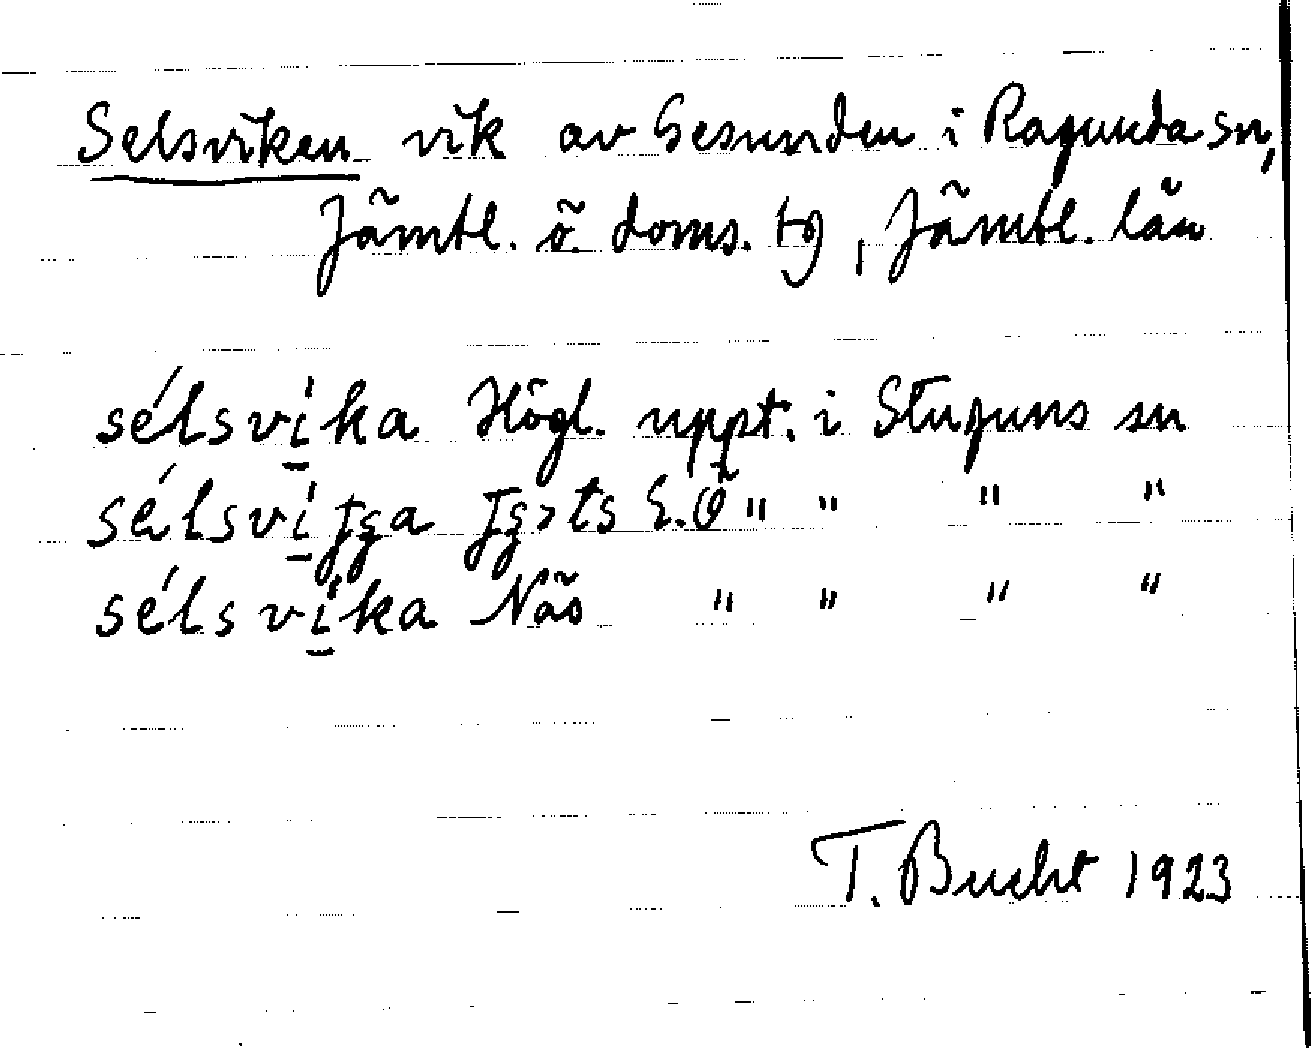 Selsviken vik av Gesunden i Ragunda sn,
Jämtl. ö. doms. tg, Jämtl. län
sélsvi̲ka Högl. uppt. i Stuguns sn
sélsvi̲ " " " "
sélsvi̲ka Näs " " " "
T. Bucht 1923